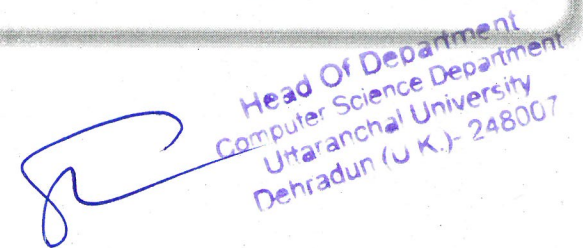 Head Of Department
Computer Science Department
Uttaranchal University
Dehradun (U K.)- 248007